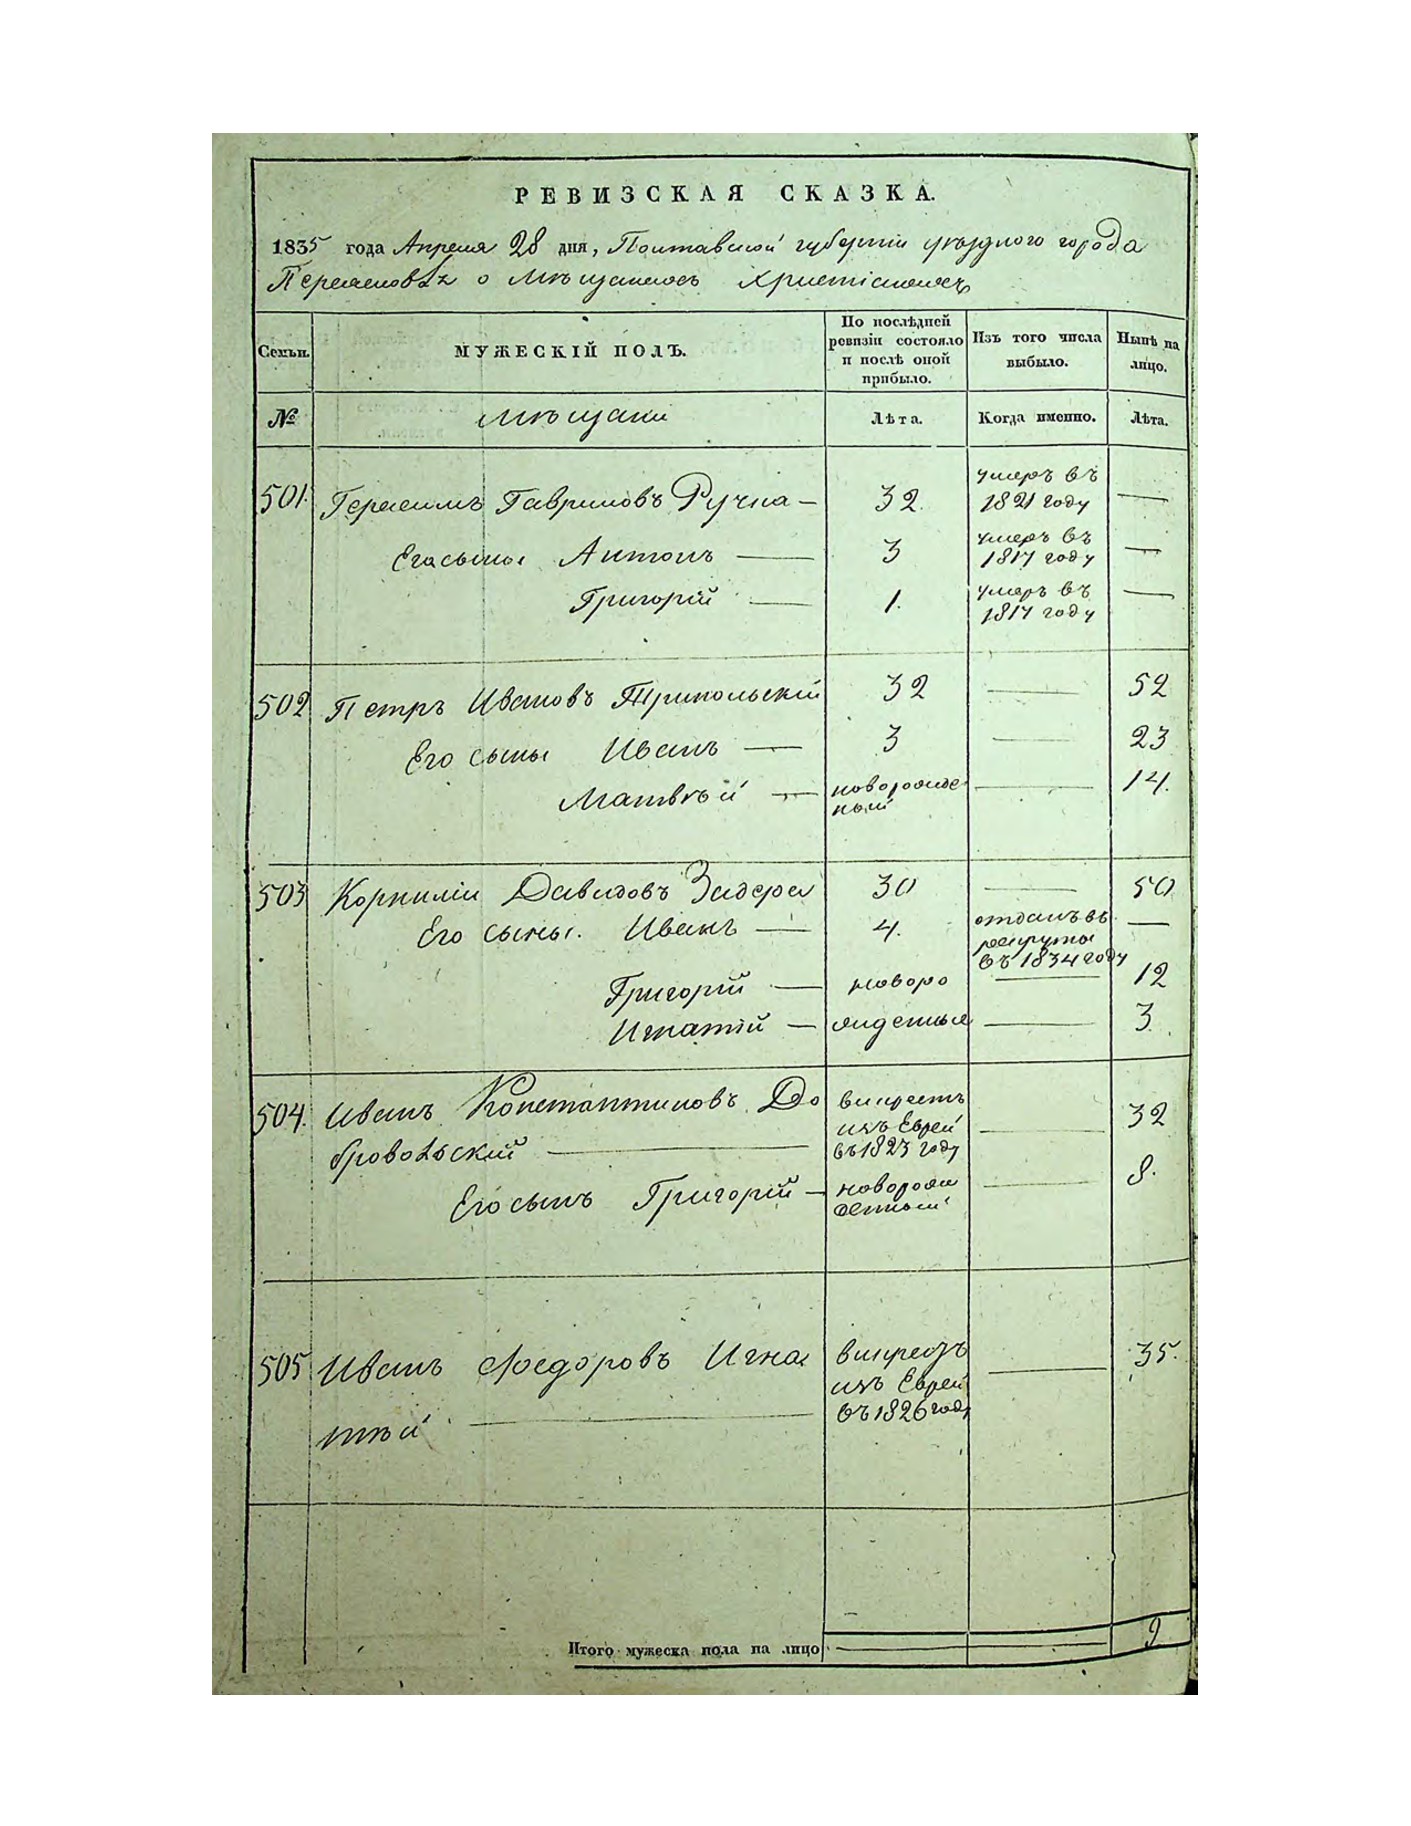 РЕВИЗСКАЯ СКАЗКА.
1835 года Апреля 28 дня, Полтавской губернии уѣзднаго города
о мѣщанахъ Христіанахъ
Семьи. МУЖЕСКІЙ ПОЛЪ. По послѣдней ревизіи состояло и послѣ оной прибыло. Изъ того числа выбыло. Нынѣ на лицо.
№ мѣщани Лѣта. Когда именно. Лѣта.
501. Герасимъ Гавриловъ Ручка — 32. умеръ въ 1821 году —
Его сыны Антонъ — 3 умеръ въ 1817 году —
Григорій — 1. умеръ въ 1817 году —
502 Петръ Ивановъ Трипольскій 32 — 52
Его сыны Иванъ — 3 — 23
Матвѣй — новорожде — 14.
ный
503 Корнилій Давидовъ Задера 30 — 50
Его сыны. Иванъ — 4. отданъ въ рекруты въ 1834 году —
Григорій — новоро — 12
Игнатій — жденные — 3
504. Иванъ Константиновъ До
бровольскій — выкрестъ изъ Еврей въ 1823 году — 32
Его сынъ Григорій — новорож — 8.
денный
505 Иванъ Федоровъ Игна выкрестъ изъ Еврей въ 1826 году — 35.
тѣй —
Итого мужеска пола на лицо — — 9